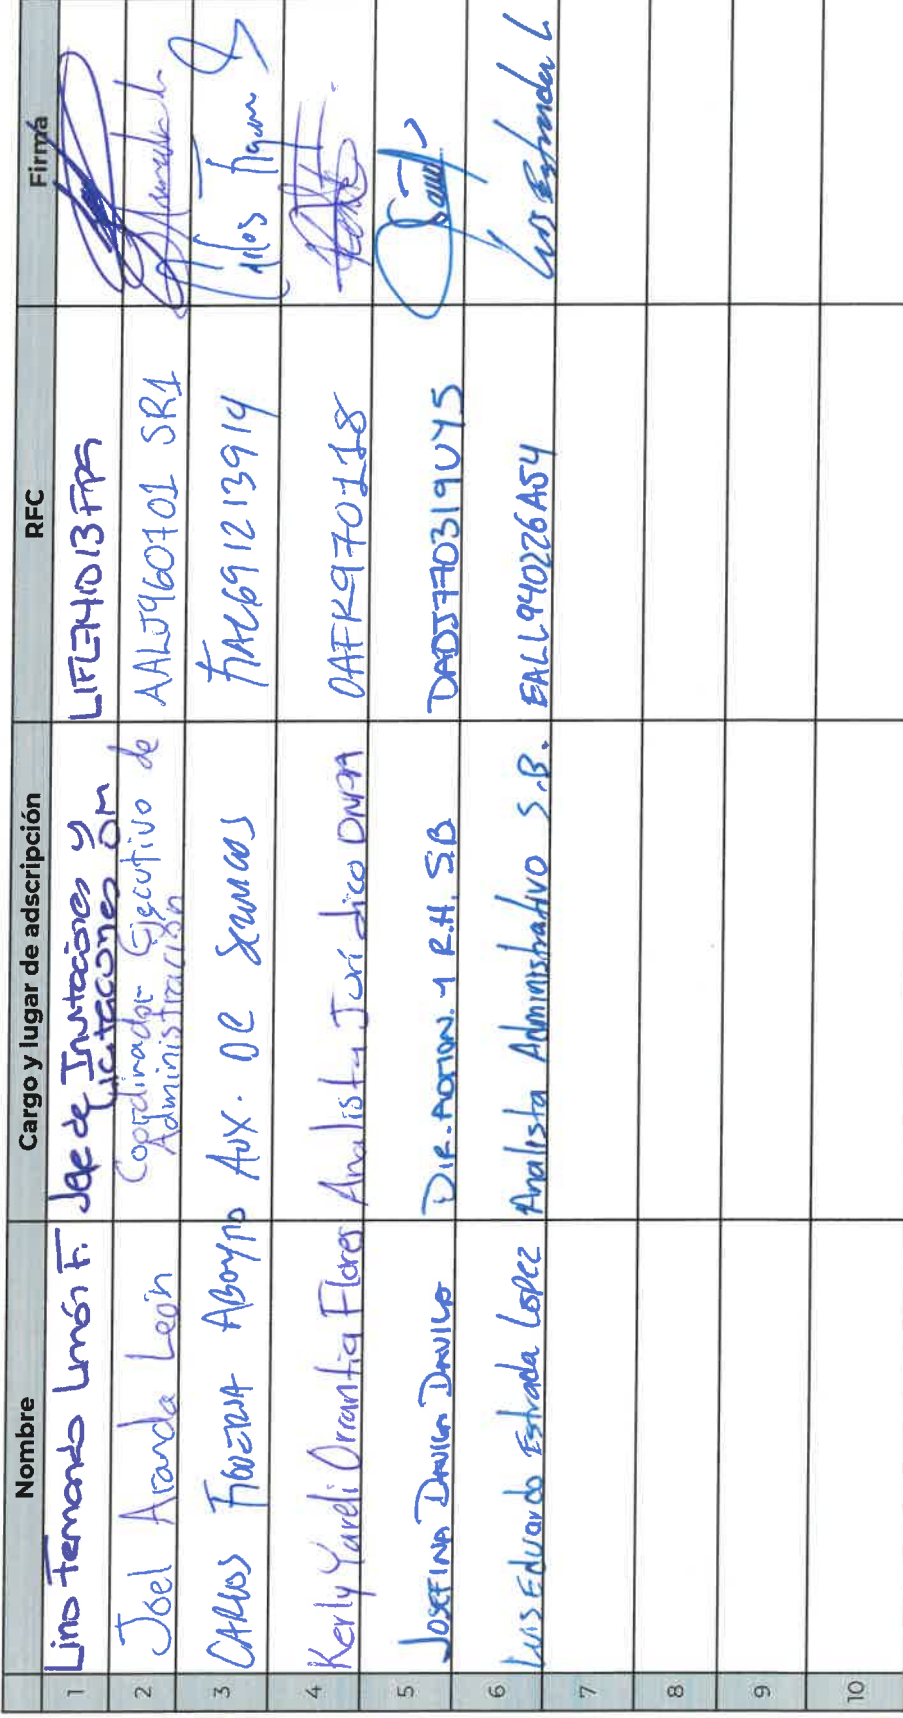 Nombre Cargo y lugar de adscripción RFC Firma
1 Lino Fernando Limón F. Jefe de Invitaciones y Licitaciones OM LIFL741013FP9
2 Joel Aranda León Coordinador Ejecutivo de Administración AALJ960701 SR1
3 CARLOS FIGUEROA ABOYTES AUX. DE SERVICIOS FIAC691213914
4 Kerly Yareli Orrantia Flores Analista Jurídico OAFK970118
5 JOSEFINA DAVILA DAVILA DIR. ADMON. Y R.H. SB DADJ770319UY5
6 LUIS EDUARDO Estrada LOPEZ Analista Administrativo S.B. EALL940226A54 Luis Estrada L
7
8
9
10